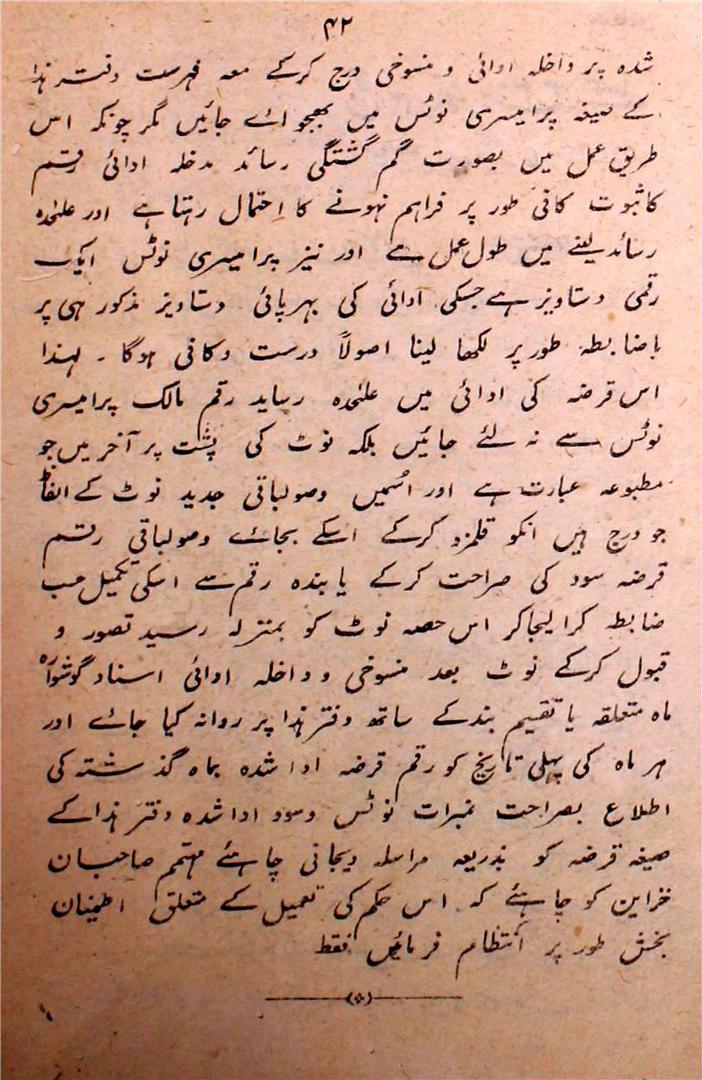 ۴۲
شدہ پر داخلہ ادائی و منسوخی درج کرکے معہ فہرست دفتر ہذا
کے صیغہ پرامیسری نوٹس میں بھجوائے جائیں مگر چونکہ اس
طریق عمل میں بصورت گم گشتگی رسائد مدخلہ ادائی رقم
کا ثبوت کافی طور پر فراہم نہونے کا احتمال رہتا ہے اور علحدہ
رسائد لینے میں طول عمل ہے اور نیز پرامیسری نوٹس ایک
رقمی دستاویز ہے جسکی ادائی کی بہرپائی دستاویز مذکور ہی پر
باضابطہ طور پر لکھا لینا اصولاً درست وکافی ہوگا ۔ لہذا
اس قرضہ کی ادائی میں علحدہ رساید رقم مالک پرامیسری
نوٹس سے نہ لئے جائیں بلکہ نوٹ کی پشت پر آخر میں جو
مطبوعہ عبارت ہے اور اسمیں وصولباقی جدید نوٹ کے الفاظ
جو درج ہیں انکو قلمزد کرکے اسکے بجائے وصولباقی رقم
قرضہ سود کی صراحت کرکے یابندہ رقم سے اسکی تکمیل حسب
ضابطہ کرالیجاکر اس حصہ نوٹ کو بمنزلہ رسید تصور و
قبول کرکے نوٹ بعد منسوخی و داخلہ ادائی اسناد گوشوارہ
ماہ متعلقہ یا تقسیم بندکے ساتھ دفتر ہذا پر روانہ کیا جائے اور
ہر ماہ کی پہلی تاریخ کو رقم قرضہ ادا شدہ بماہ گذشتہ کی
اطلاع بصراحت نمبرات نوٹس وسود ادا شدہ دفتر ہذا کے
صیغہ قرضہ کو بذریعہ مراسلہ دیجانی چاہئے مہتمم صاحبان
خزاین کو چاہئے کہ اس حکم کی تعمیل کے متعلق اطمینان
بخش طور پر انتظام فرمائیں فقط